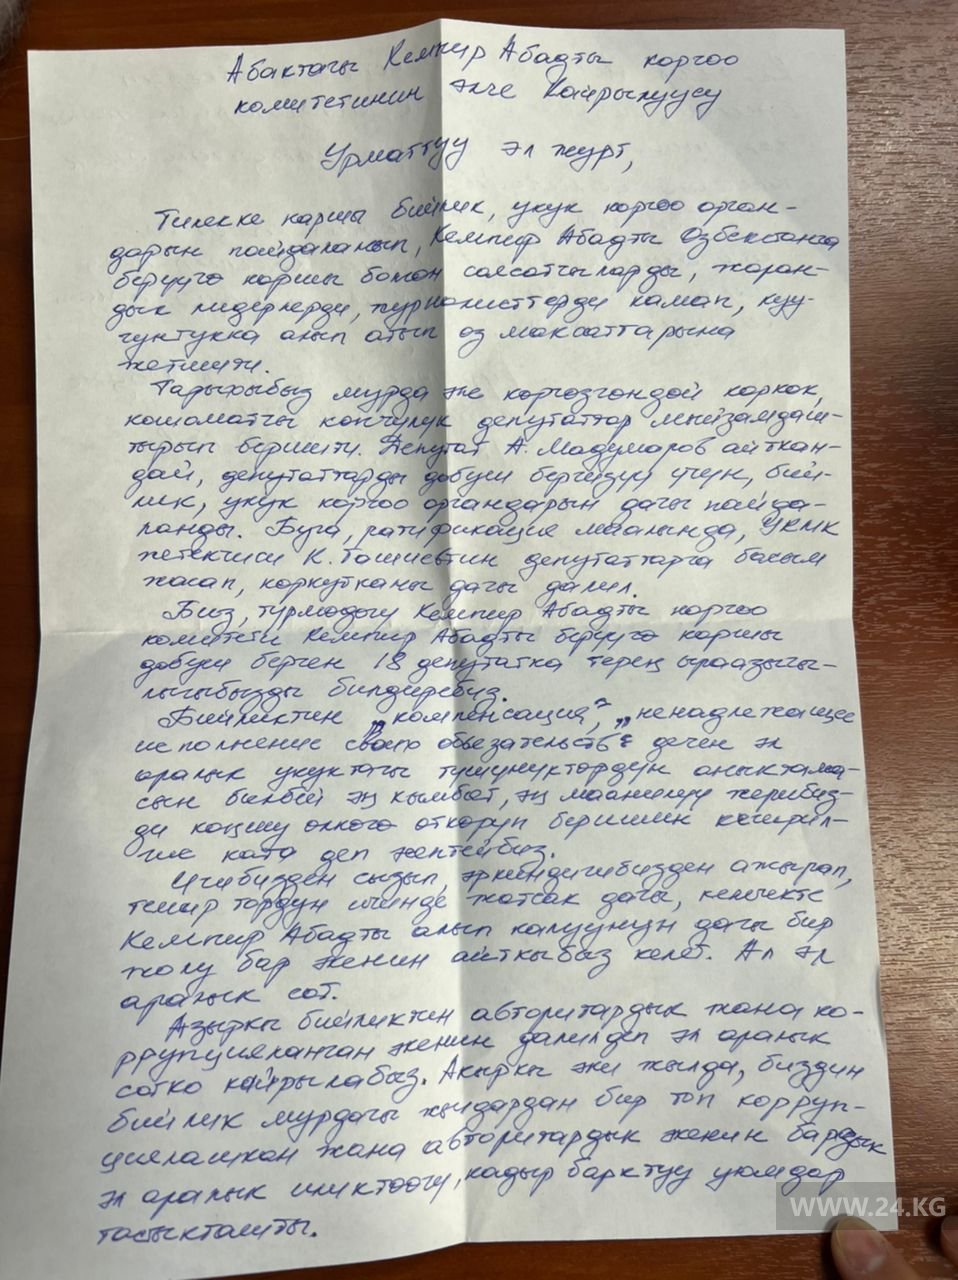 Абактагы Кемпир Абадты коргоо
комитетинин элге Кайрылуусу
Урматтуу эл журт,
Тилекке каршы бийлик, укук коргоо орган-
дарын пайдаланып, Кемпир Абадты Озбекстанга
берүүгө каршы болгон саясатчыларды, жаран-
дык лидерлерди, журналисттерди камап, куу-
гунтукка алып атып оз максаттарына
жетишти.
Тарыхыбыз мурда эле коргозгондой коркок,
кошоматчы копчулук депутаттар мыйзамдаш-
тырып беришти. Депутат А. Мадумаров айткан-
дай, депутаттарды добуш бергизүү үчүн, бий-
лик, укук коргоо органдарын дагы пайда-
ланды. Буга, ратификация маалында, УКМК
жетекчиси К. Ташиевтин депутаттарга басым
жасап, коркутканы дагы далил.
Биз, түрмөдөгү Кемпир Абадты коргоо
комитети Кемпир Абадты берүүгө каршы
добуш берген 18 депутатка терең ыраазычы-
лыгыбызды билдиребиз.
Бийликтин „компенсация", „ненадлежащее
исполнение своих обязательств" деген эл
аралык укуктагы түшүнүктөрдүн аныктама-
сын билбей эң кымбат, эң маанилүү жерибиз-
ди коңшу өлкөгө откоруп беришин кечирил-
гис ката деп эсептейбиз.
Ичибизден сызып, эркиндигибизден ажырап,
темир тордун ичинде жатсак дагы, келечекте
Кемпир Абадты алып калуунун дагы бир
жолу бар экенин айткыбыз келет. Ал эл
аралык сот.
Азыркы бийликтин авторитардык жана ко-
ррупцияланган экенин далилдеп эл аралык
сотко кайрылабыз. Акыркы эки жылда, биздин
бийлик мурдагы жылдардан бир топ корруп-
циялашкан жана авторитардык экенин бардык
эл аралык иликтоочу, кадыр барктуу уюмдар
тастыкташты.
WWW.24.KG